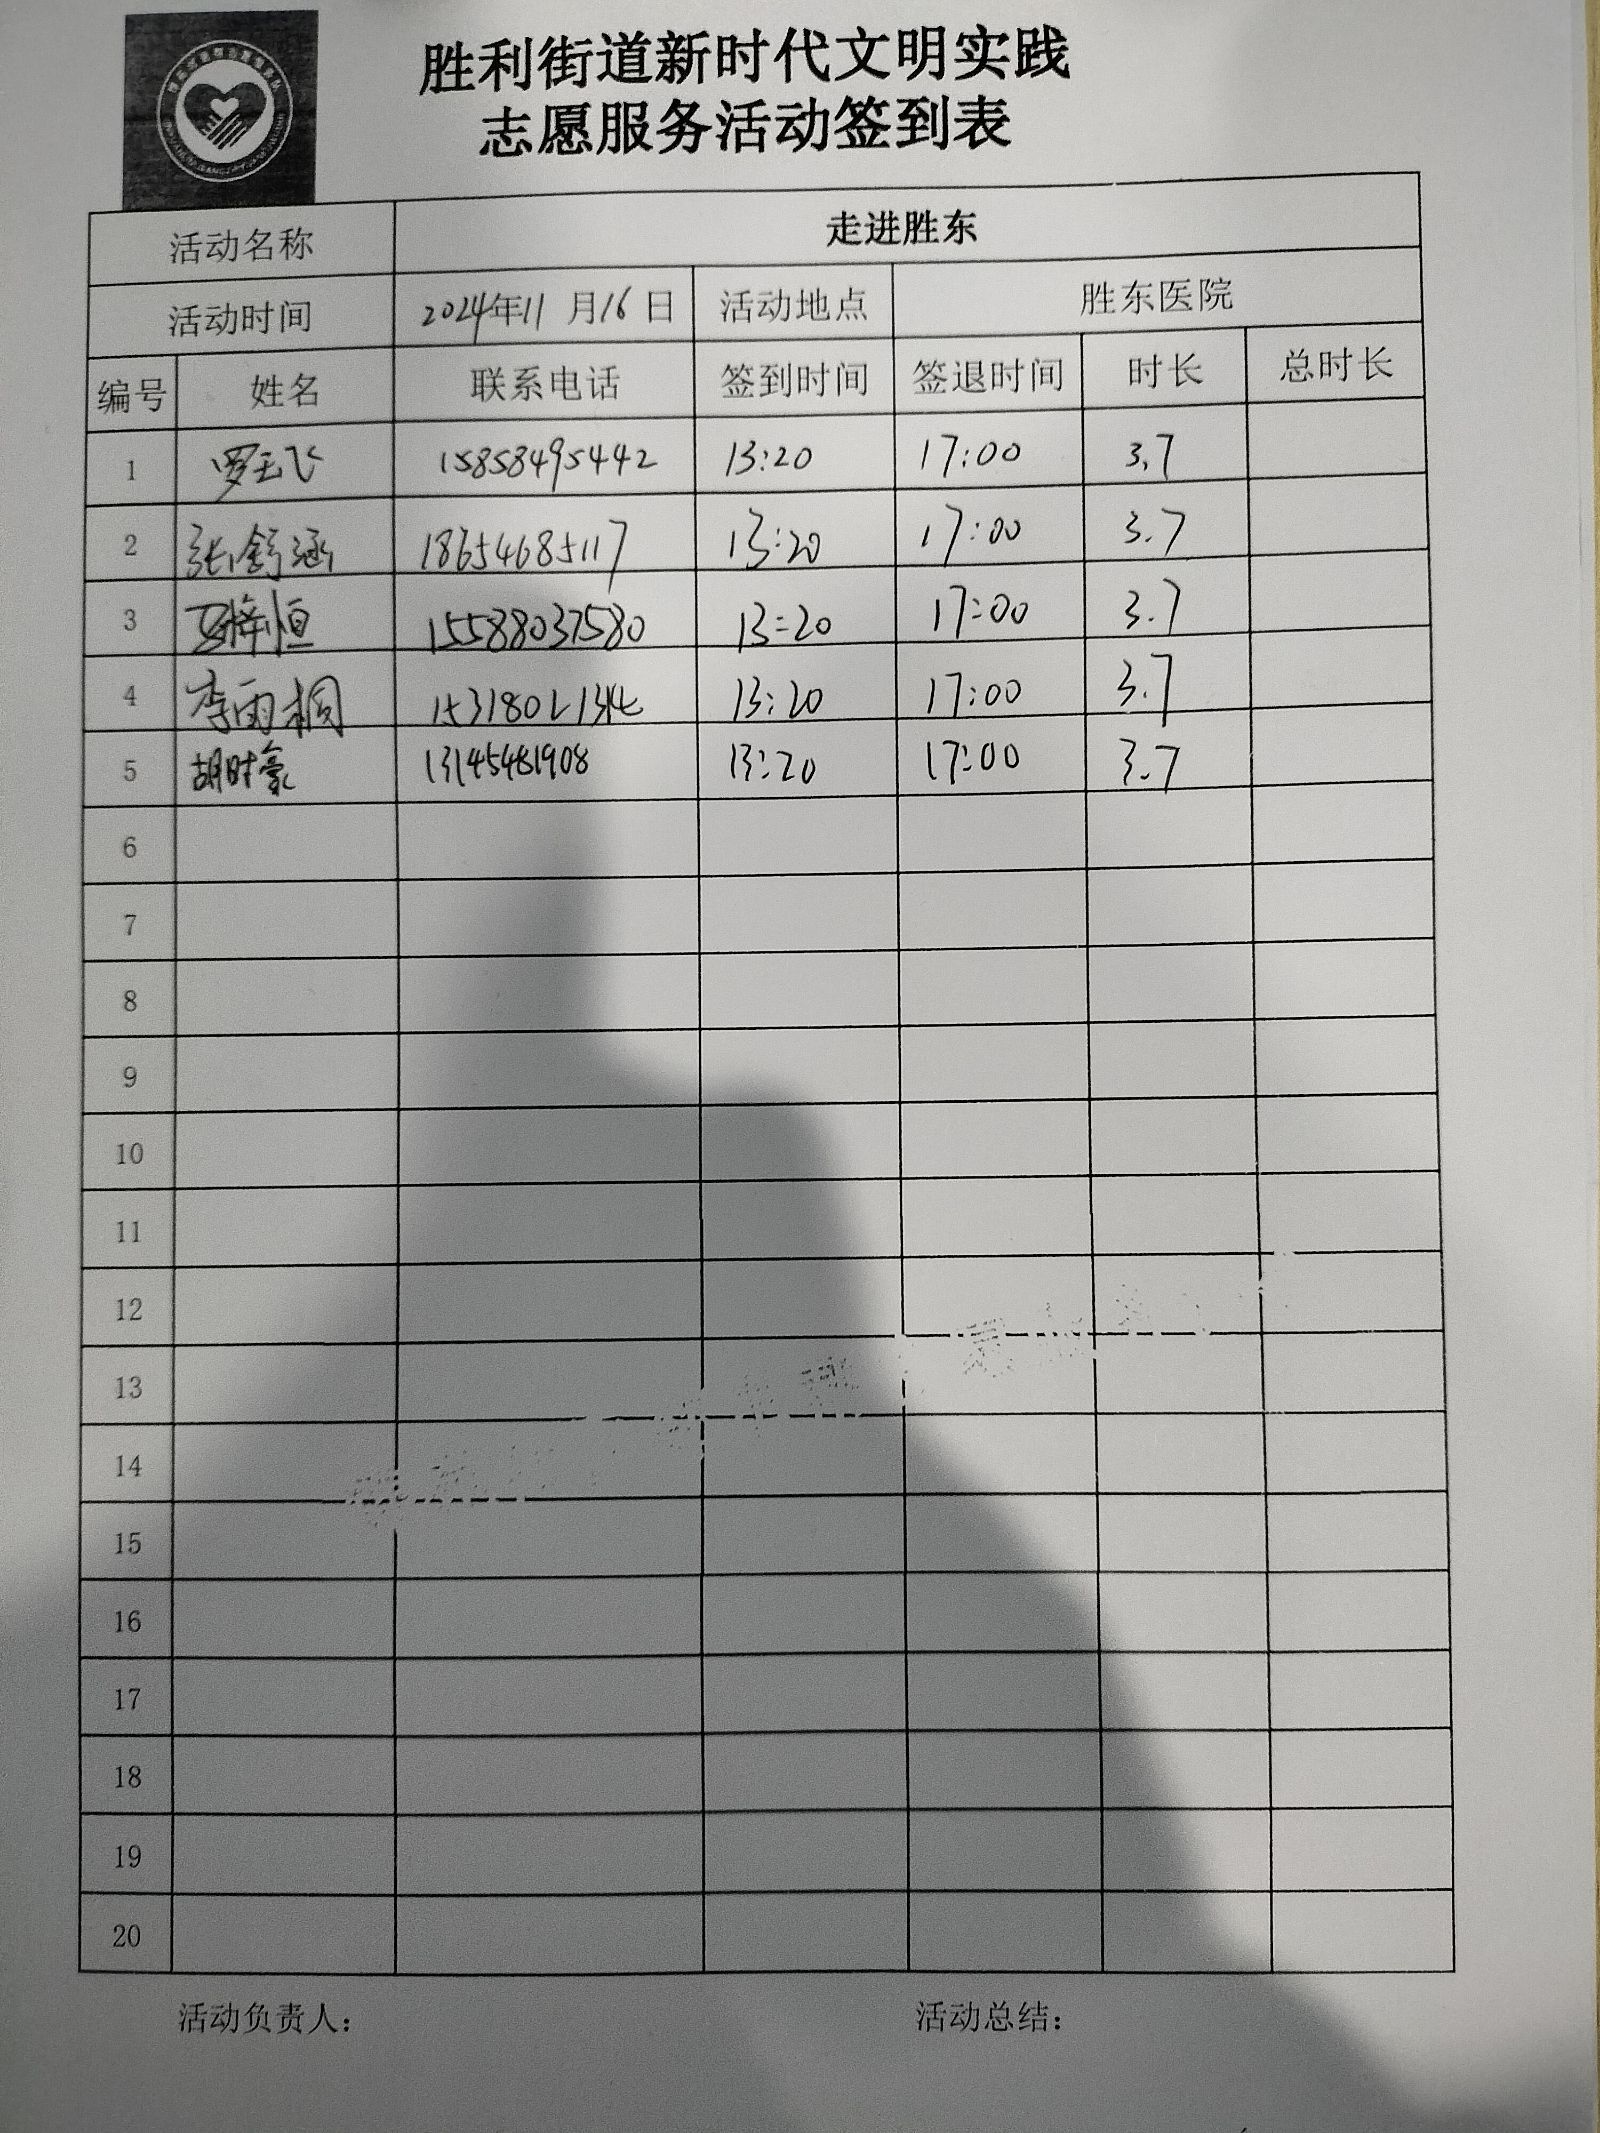 胜利街道新时代文明实践
志愿服务活动签到表
活动名称 走进胜东
活动时间 2024年11月16日 活动地点 胜东医院
编号 姓名 联系电话 签到时间 签退时间 时长 总时长
1 罗玉飞 15858495442 13:20 17:00 3.7
2 张舒涵 18654685117 13:20 17:00 3.7
3 梓恒 15588037580 13:20 17:00 3.7
4 李雨桐 13:20 17:00 3.7
5 胡时豪 13145481908 13:20 17:00 3.7
6
7
8
9
10
11
12
13
14
15
16
17
18
19
20
活动负责人： 活动总结：